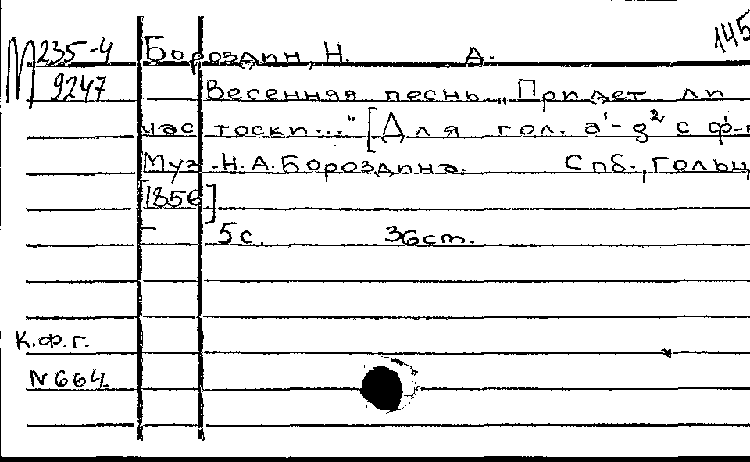 145
М 235-4 Бороздин, Н. А.
9247 Весенняя песнь. „Придет ли
час тоски..." [Для гол. a¹-g² с ф-п
Муз. Н.А. Бороздина. Спб., Гольц,
[1856]
5с. 36cm.
К.Ф.Г.
N 664